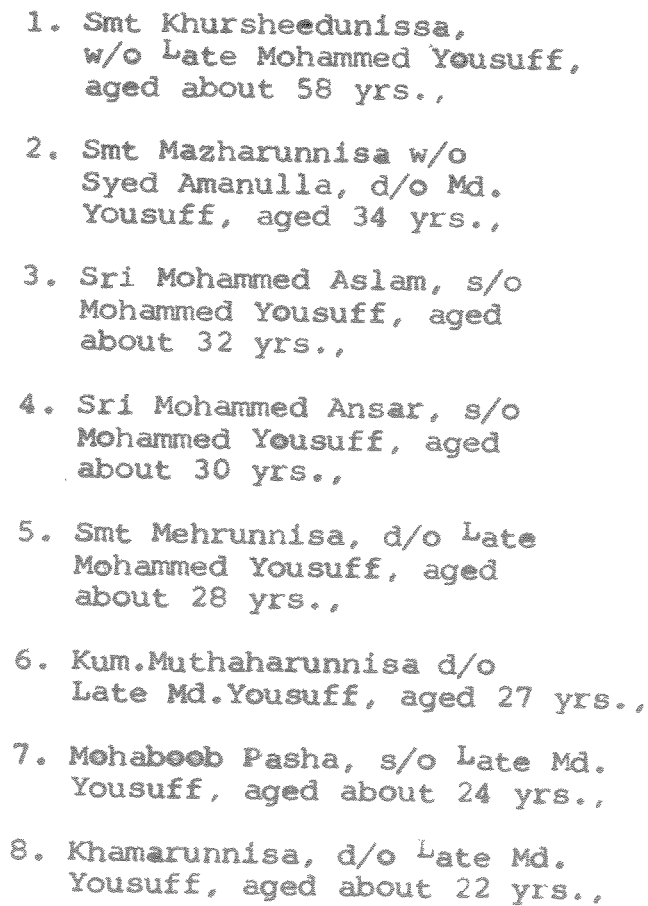 1. Smt Khursheedunissa,
w/o Late Mohammed Yousuff,
aged about 58 yrs.,
2. Smt Mazharunnisa w/o
Syed Amanulla, d/o Md.
Yousuff, aged 34 yrs.,
3. Sri Mohammed Aslam, s/o
Mohammed Yousuff, aged
about 32 yrs.,
4. Sri Mohammed Ansar, s/o
Mohammed Yousuff, aged
about 30 yrs.,
5. Smt Mehrunnisa, d/o Late
Mohammed Yousuff, aged
about 28 yrs.,
6. Kum.Muthaharunnisa d/o
Late Md.Yousuff, aged 27 yrs.,
7. Mohaboob Pasha, s/o Late Md.
Yousuff, aged about 24 yrs.,
8. Khamarunnisa, d/o Late Md.
Yousuff, aged about 22 yrs.,